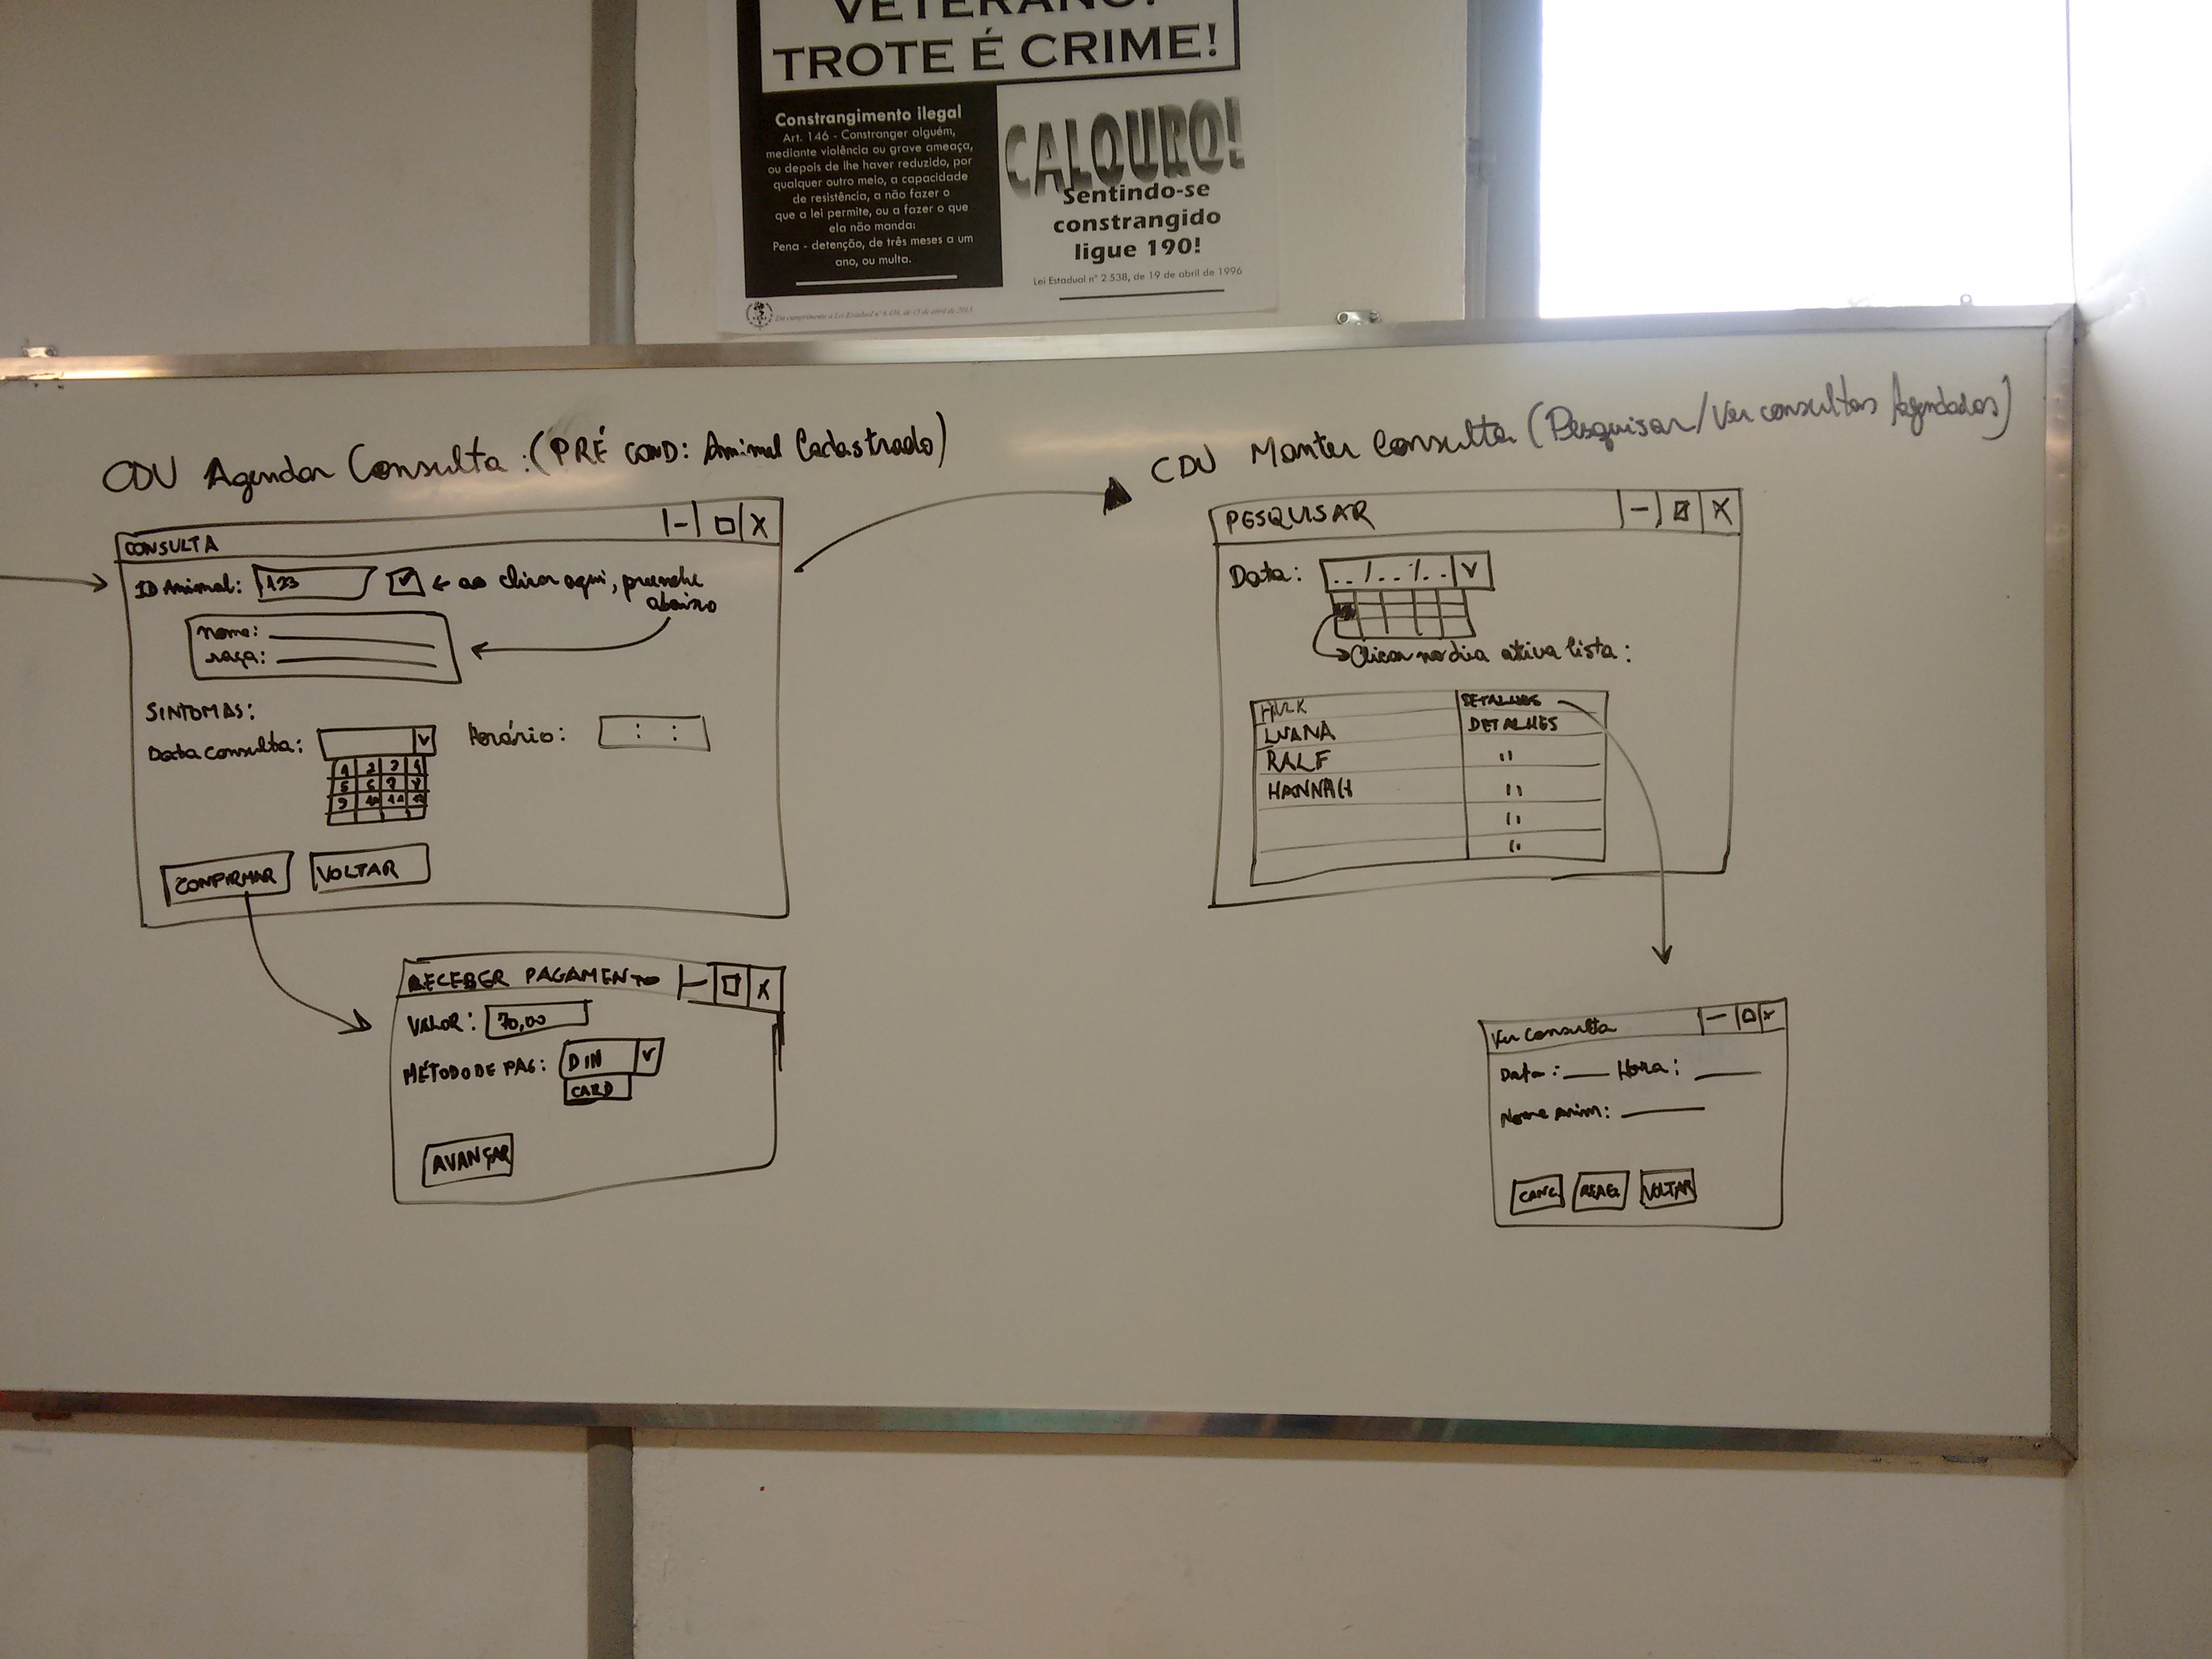 VETERANO!
TROTE É CRIME!
Constrangimento ilegal
Art. 146 - Constranger alguém,
mediante violência ou grave ameaça,
ou depois de lhe haver reduzido, por
qualquer outro meio, a capacidade
de resistência, a não fazer o
que a lei permite, ou a fazer o que
ela não manda:
Pena - detenção, de três meses a um
ano, ou multa.
CALOURO!
Sentindo-se
constrangido
ligue 190!
Lei Estadual nº 2.538, de 19 de abril de 1996
CDU Agendar Consulta: (PRÉ COND: Animal Cadastrado)
CONSULTA
|-| □ X
ID Animal: 123 ✓ ← ao clicar aqui, preenche
abaixo
nome:
raça:
SINTOMAS:
Data consulta: V Horário: : :
1 2 3 4
5 6 7 8
9 10 11 12
CONFIRMAR VOLTAR
RECEBER PAGAMENTO - □ X
VALOR: 70,00
MÉTODO DE PAG: DIN V
CARD
AVANÇAR
CDU Manter Consulta (Pesquisar/Ver consultas Agendadas)
PESQUISAR - □ X
Data: ../../.. V
Clicar no dia ativa lista:
HULK DETALHES
LUANA DETALHES
RALF "
HANNAH "
"
"
Ver Consulta - □ X
Data: Hora:
Nome Anim:
CANC. REAG. VOLTAR